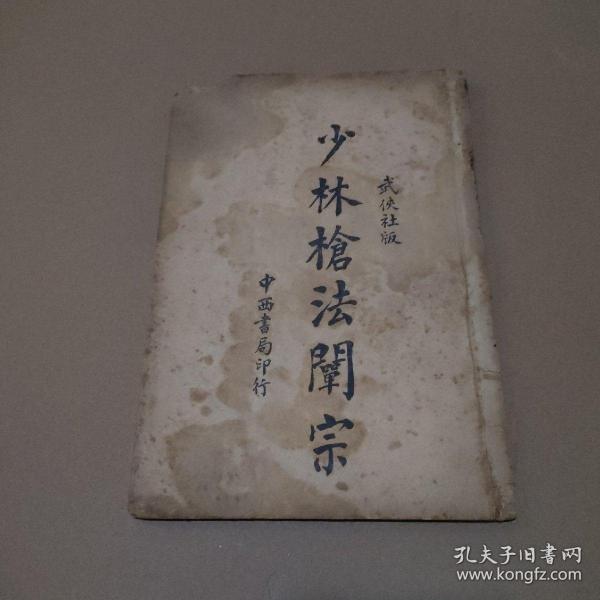 武俠社版
少林槍法闡宗
中西書局印行
孔夫子旧书网
www.kongfz.com